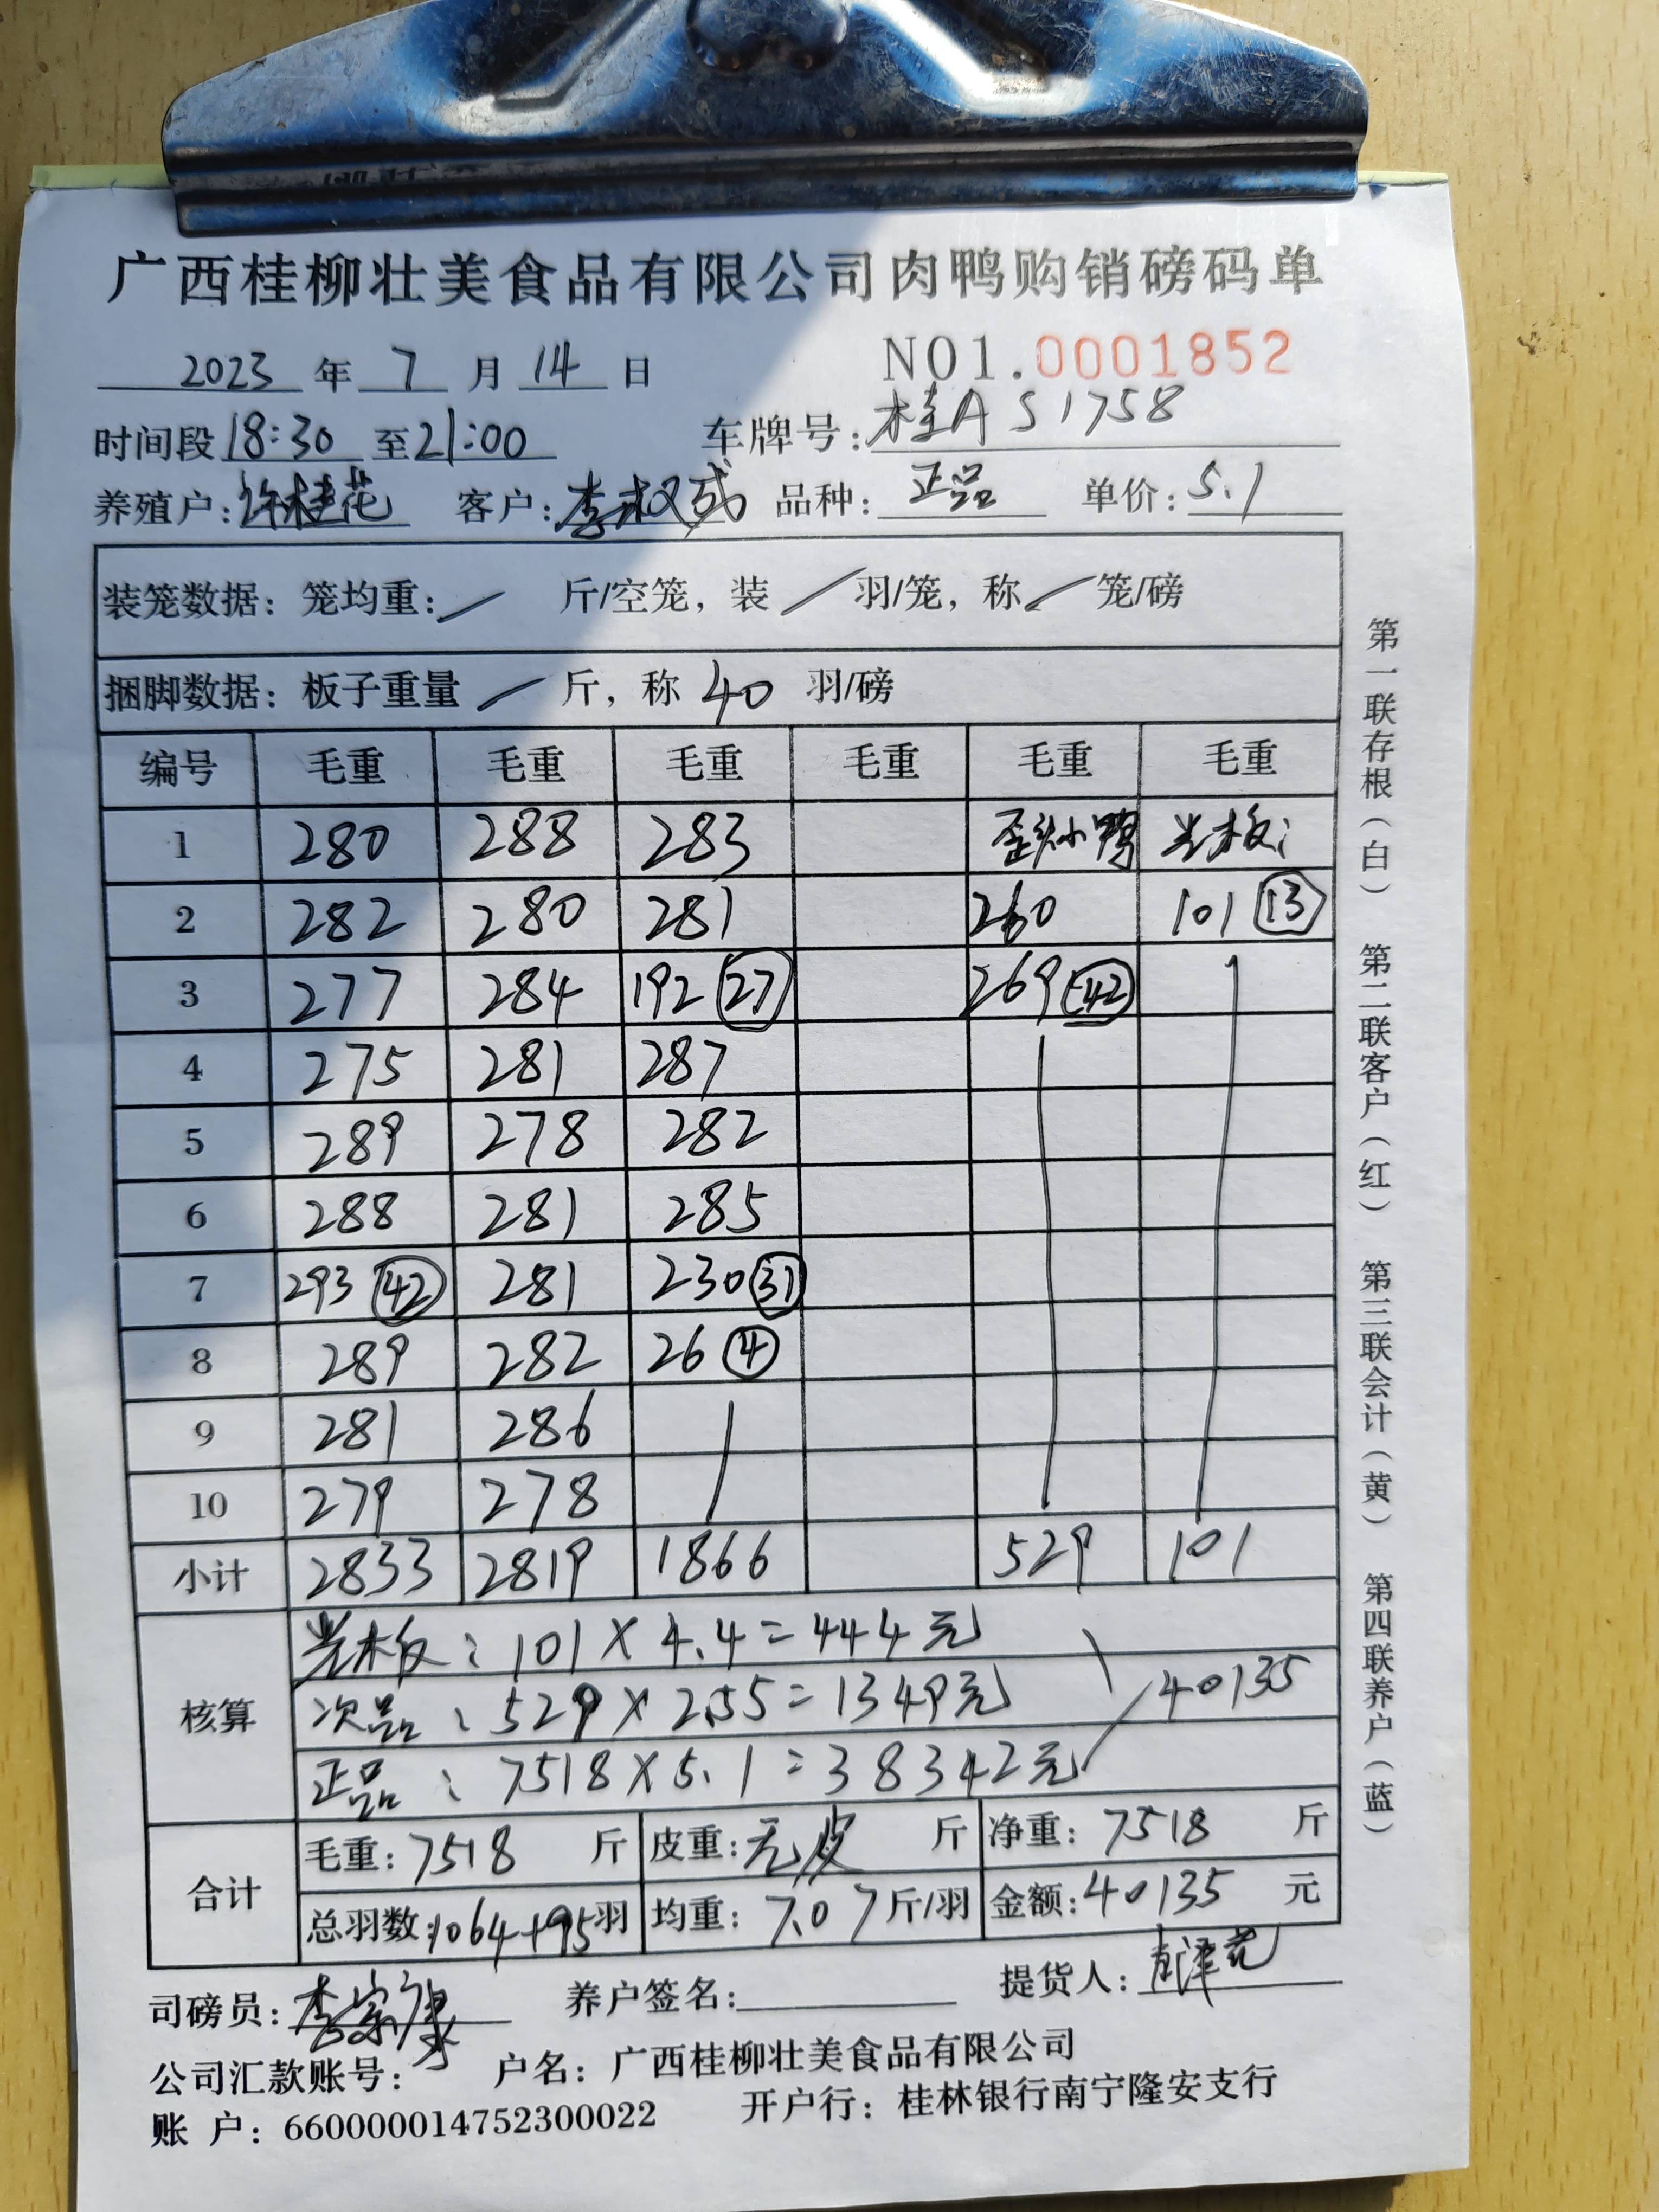 广西桂柳壮美食品有限公司肉鸭购销磅码单
2023 年 7 月 14 日 NO1.0001852
时间段 18:30 至 21:00 车牌号: 桂A S1758
养殖户: 许桂花 客户: 李权成 品种: 正品 单价: 5.1
装笼数据: 笼均重: / 斤/空笼, 装 / 羽/笼, 称 / 笼/磅
捆脚数据: 板子重量 / 斤, 称 40 羽/磅
编号 毛重 毛重 毛重 毛重 毛重 毛重
1 280 288 283 歪头小鸭 光板:
2 282 280 281 260 101 13
3 277 284 192 27 269 42
4 275 281 287
5 289 278 282
6 288 281 285
7 293 42 281 230 31
8 289 282 26 4
9 281 286
10 279 278
小计 2833 2819 1866 529 101
核算
光板: 101×4.4=444元
次品: 529×2.55=1349元 40135
正品: 7518×5.1=38342元
合计
毛重: 7518 斤 皮重: 无皮 斤 净重: 7518 斤
总羽数: 1064+95 羽 均重: 7.07 斤/羽 金额: 40135 元
司磅员: 李宗康 养户签名: 提货人:
公司汇款账号: 户名: 广西桂柳壮美食品有限公司
账 户: 660000014752300022 开户行: 桂林银行南宁隆安支行
第一联存根(白) 第二联客户(红) 第三联会计(黄) 第四联养户(蓝)